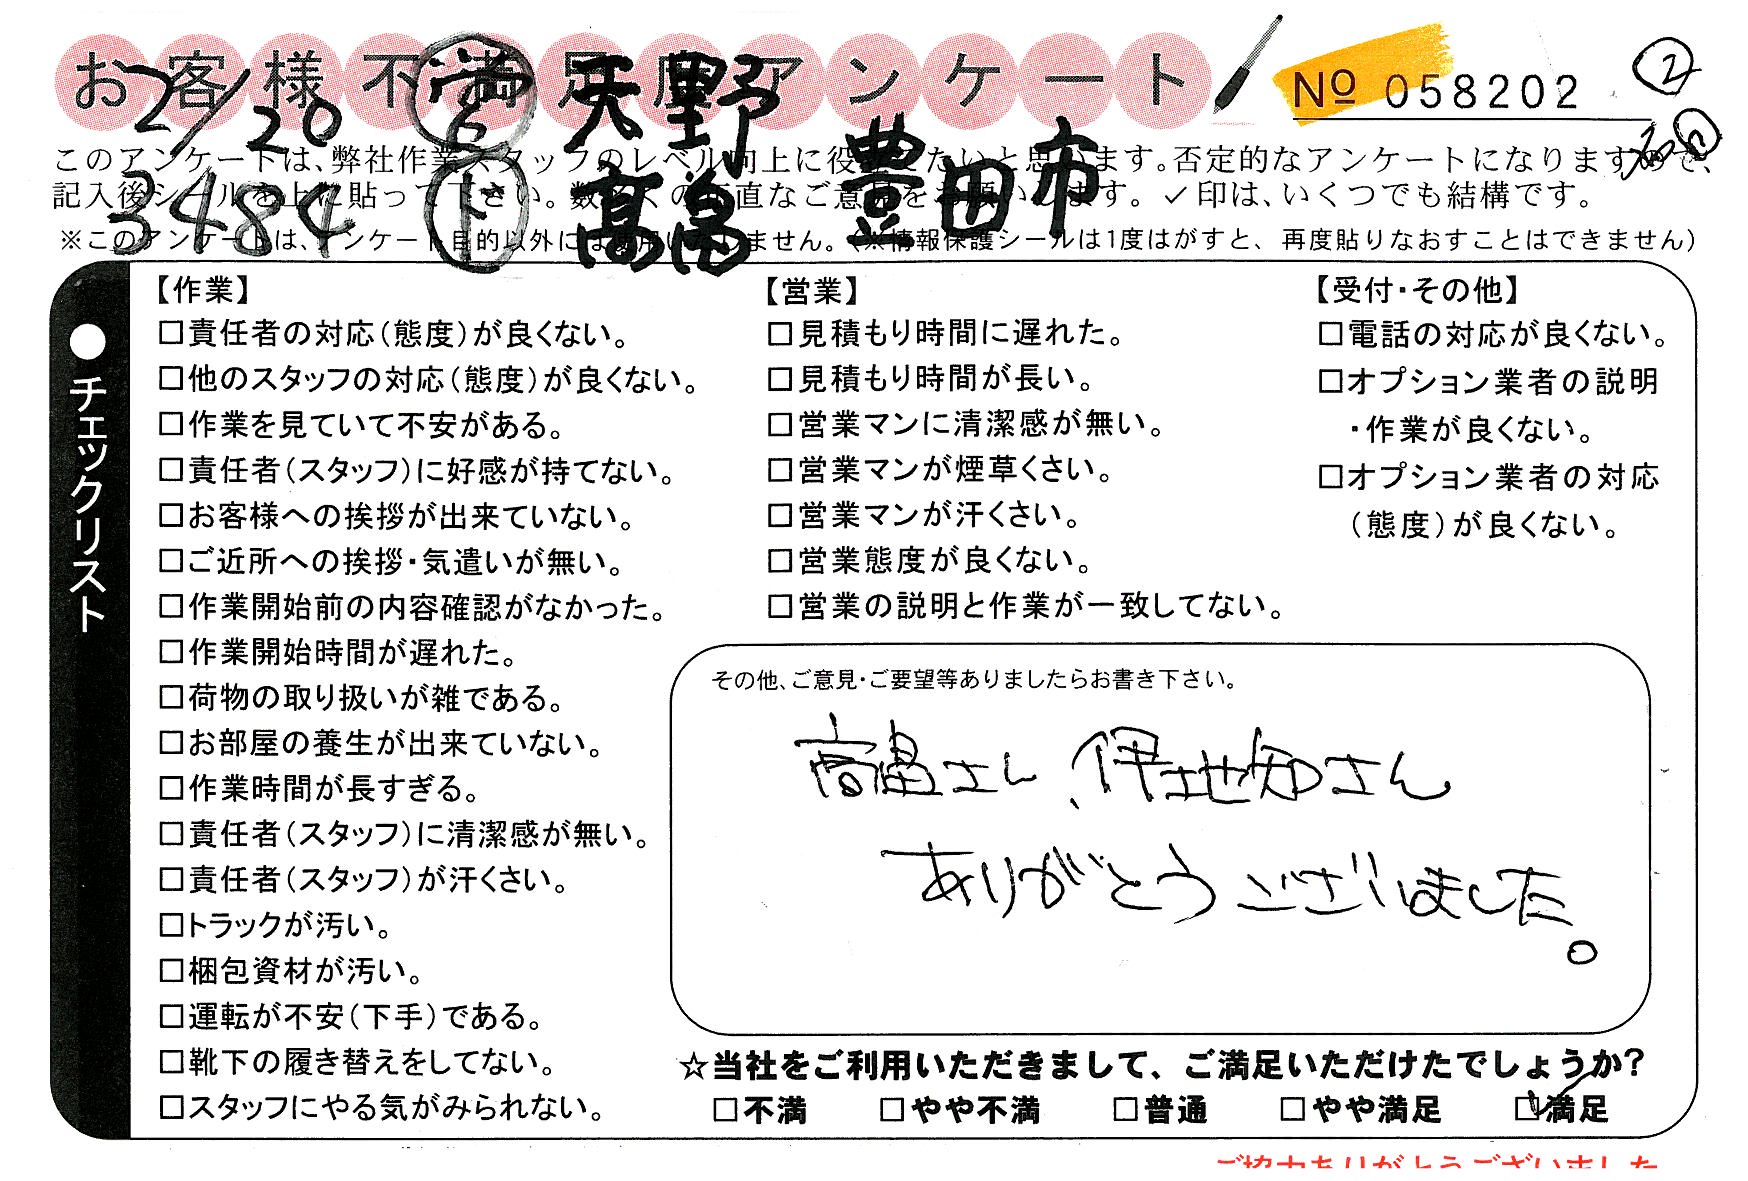 お客様不満足度アンケート
№ 058202
②
2/20 営 天野
3484 ト 高畠 豊田市
このアンケートは、弊社作業スタッフのレベル向上に役立てたいと思います。否定的なアンケートになりますので、
記入後シールを上に貼って下さい。数多くの正直なご意見をお願いします。✓印は、いくつでも結構です。
※このアンケートは、アンケート目的以外には使用いたしません。(※情報保護シールは1度はがすと、再度貼りなおすことはできません)
●チェックリスト
【作業】
□責任者の対応(態度)が良くない。
□他のスタッフの対応(態度)が良くない。
□作業を見ていて不安がある。
□責任者(スタッフ)に好感が持てない。
□お客様への挨拶が出来ていない。
□ご近所への挨拶・気遣いが無い。
□作業開始前の内容確認がなかった。
□作業開始時間が遅れた。
□荷物の取り扱いが雑である。
□お部屋の養生が出来ていない。
□作業時間が長すぎる。
□責任者(スタッフ)に清潔感が無い。
□責任者(スタッフ)が汗くさい。
□トラックが汚い。
□梱包資材が汚い。
□運転が不安(下手)である。
□靴下の履き替えをしてない。
□スタッフにやる気がみられない。
【営業】
□見積もり時間に遅れた。
□見積もり時間が長い。
□営業マンに清潔感が無い。
□営業マンが煙草くさい。
□営業マンが汗くさい。
□営業態度が良くない。
□営業の説明と作業が一致してない。
【受付・その他】
□電話の対応が良くない。
□オプション業者の説明
・作業が良くない。
□オプション業者の対応
(態度)が良くない。
その他、ご意見・ご要望等ありましたらお書き下さい。
高畠さん、伊地知さん
ありがとうございました。
☆当社をご利用いただきまして、ご満足いただけたでしょうか?
□不満 □やや不満 □普通 □やや満足 ☑満足
ご協力ありがとうございました